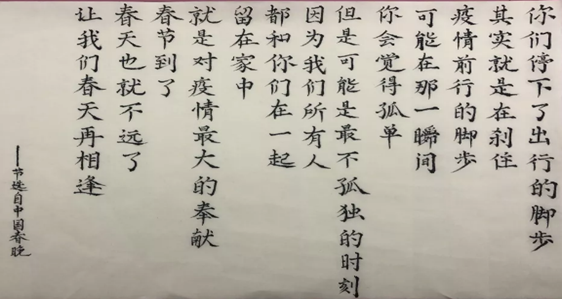 你们停下了出行的脚步
其实就是在刹住
疫情前行的脚步
可能在那一瞬间
你会觉得孤单
但是可能是最不孤独的时刻
因为我们所有人
都和你们在一起
留在家中
就是对疫情最大的奉献
春节到了
春天也就不远了
让我们春天再相逢
——节选自中国春晚